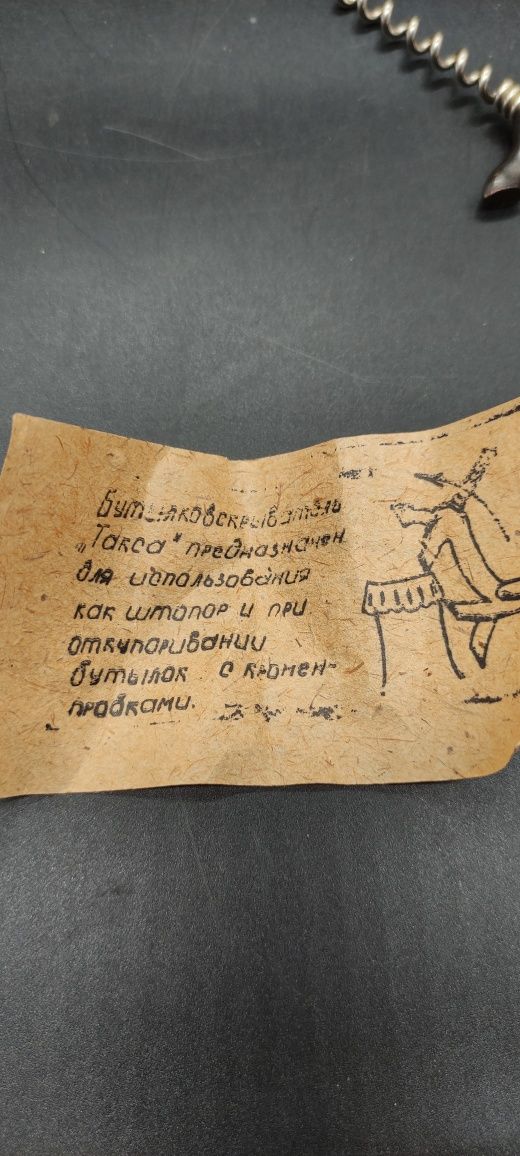 Бутылковскрыватель
„Такса" предназначен
для использования
как штопор и при
откупоривании
бутылок с кронен-
пробками.